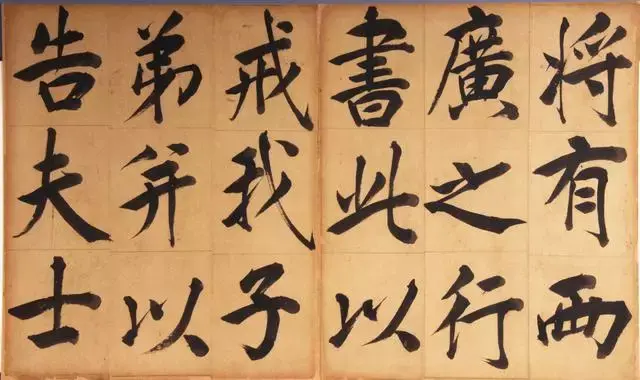 将有西
廣之行
書此以
戒我子
弟并以
告夫士